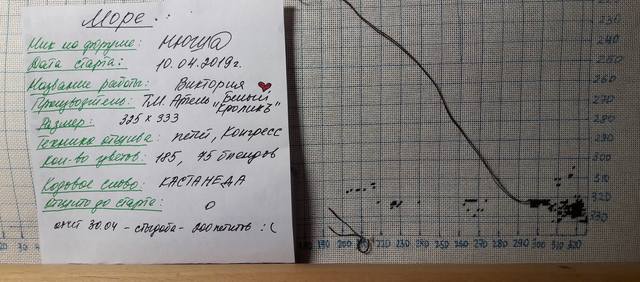 Море.:
Ник на форуме: НЮША
Дата старта: 10.04.2019г.
Название работы: Виктория
Производитель: Т.М. Артель "Белый кроликъ"
Размер: 325 х 333
Техника отшива: петит, Конгресс
Кол-во цветов: 185, 75 блендов
Кодовое слово: КАСТАНЕДА
отшито до старта: 0
отчёт 30.04 - стыдоба - 200 петитов :(
220
230
240
250
260
270
280
290
300
310
320
330
20 30
190 200 210 220 230 240 250 260 270 280 290 300 310 320